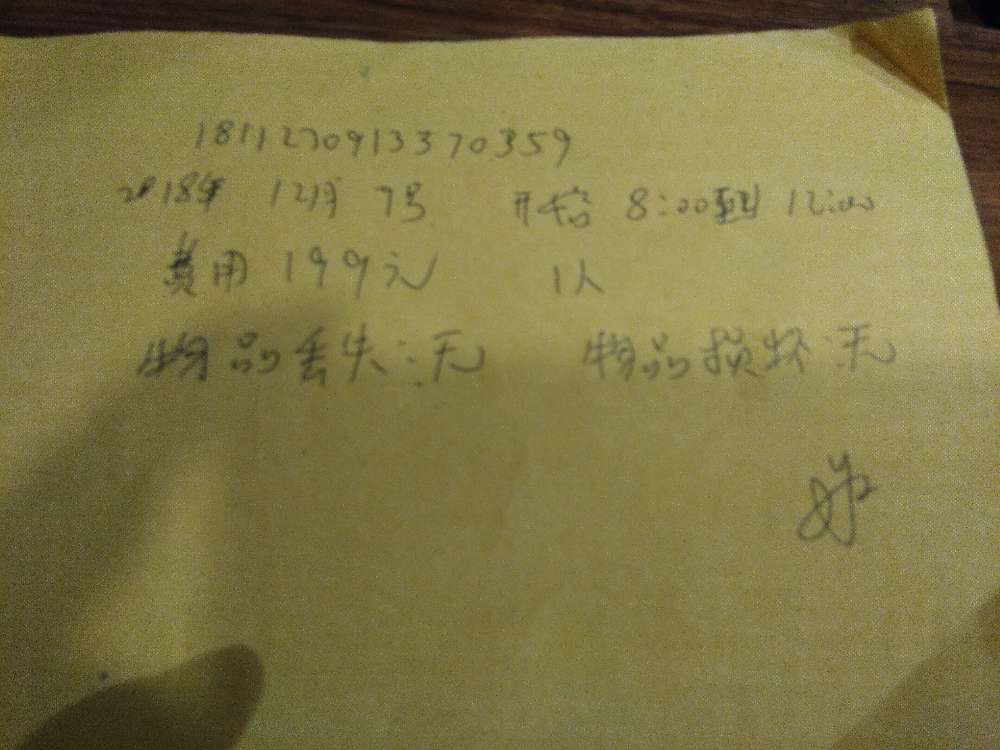 181127091337​0359
2018年 12月 7号 开始 8:00到 12:00
费用 199元 1人
物品丢失:无 物品损坏:无